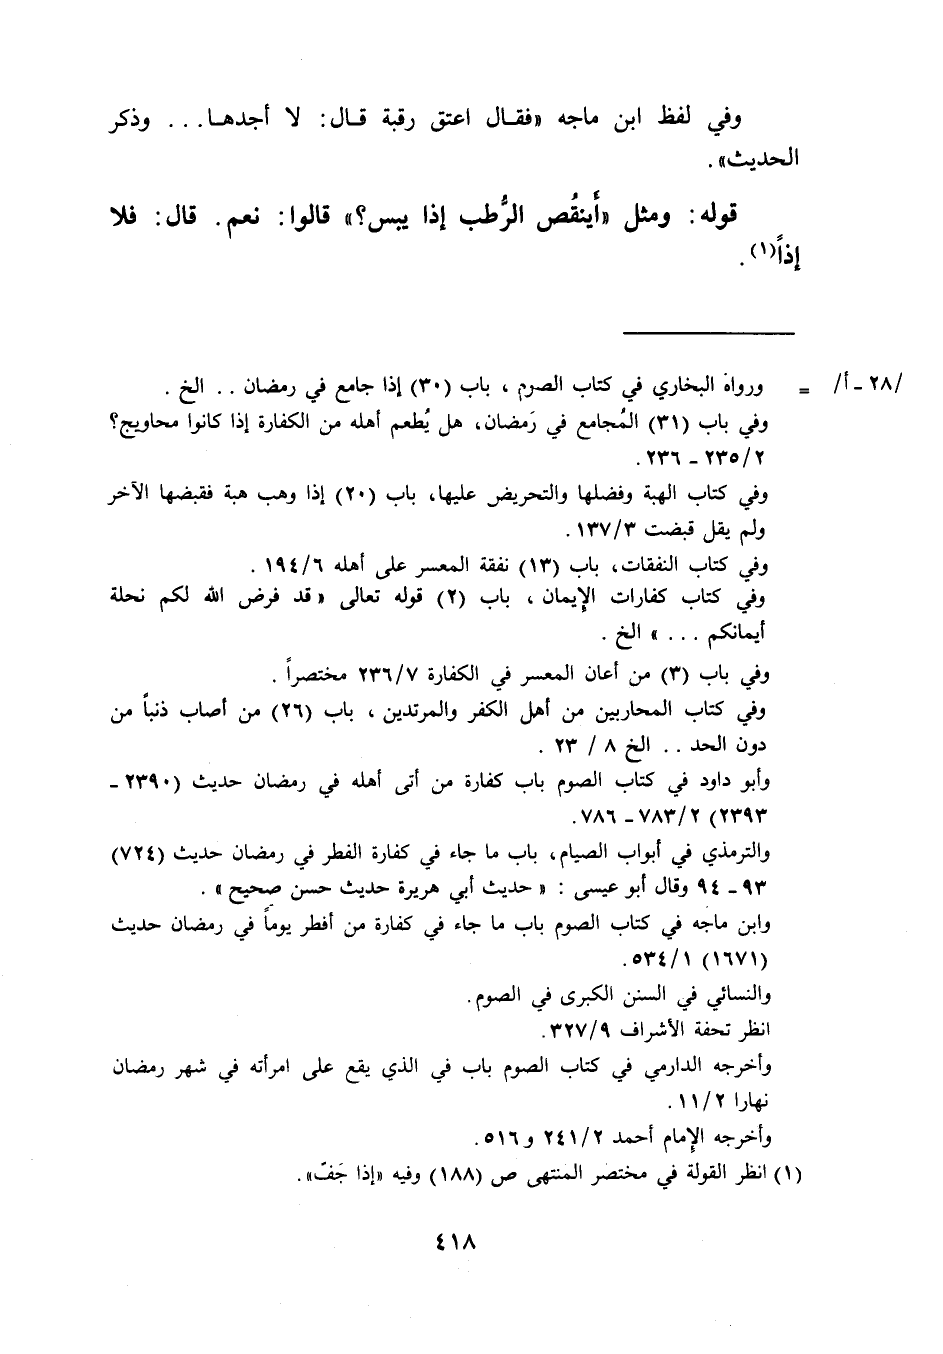 وفي لفظ ابن ماجه «فقال اعتق رقبة قال: لا أجدها... وذكر
الحديث».
قوله: ومثل «أَينقُص الرُّطب إذا يبس؟» قالوا: نعم. قال: فلا
إذاً(١).
/٢٨ - أ/ = ورواه البخاري في كتاب الصوم ، باب (٣٠) إذا جامع في رمضان .. الخ .
وفي باب (٣١) المُجامع في رَمضان، هل يُطعم أهله من الكفارة إذا كانوا محاويج؟
٢٣٥/٢ - ٢٣٦.
وفي كتاب الهبة وفضلها والتحريض عليها، باب (٢٠) إذا وهب هبة فقبضها الآخر
ولم يقل قبضت ١٣٧/٣.
وفي كتاب النفقات، باب (١٣) نفقة المعسر على أهله ١٩٤/٦ .
وفي كتاب كفارات الإيمان ، باب (٢) قوله تعالى « قد فرض الله لكم نحلة
أيمانكم ... » الخ .
وفي باب (٣) من أعان المعسر في الكفارة ٢٣٦/٧ مختصراً .
وفي كتاب المحاربين من أهل الكفر والمرتدين ، باب (٢٦) من أصاب ذنباً من
دون الحد .. الخ ٨ / ٢٣ .
وأبو داود في كتاب الصوم باب كفارة من أتى أهله في رمضان حديث (٢٣٩٠ -
٢٣٩٣) ٧٨٣/٢ - ٧٨٦.
والترمذي في أبواب الصيام، باب ما جاء في كفارة الفطر في رمضان حديث (٧٢٤)
٩٣ - ٩٤ وقال أبو عيسى : « حديث أبي هريرة حديث حسن صحيح » .
وابن ماجه في كتاب الصوم باب ما جاء في كفارة من أفطر يوماً في رمضان حديث
(١٦٧١) ٥٣٤/١.
والنسائي في السنن الكبرى في الصوم.
انظر تحفة الأشراف ٣٢٧/٩.
وأخرجه الدارمي في كتاب الصوم باب في الذي يقع على امرأته في شهر رمضان
نهارا ١١/٢.
وأخرجه الإمام أحمد ٢٤١/٢ و ٥١٦.
(١) انظر القولة في مختصر المنتهى ص (١٨٨) وفيه «إذا جَفّ».
٤١٨